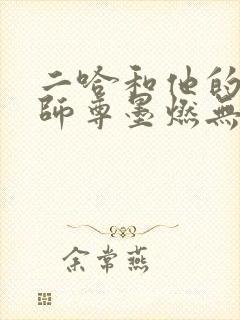 二哈和他的
師尊墨燃無
余常燕